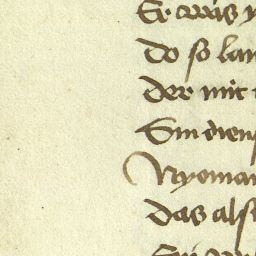 Er was
do so lan
der mit
Sin diens
Nyoman
das als